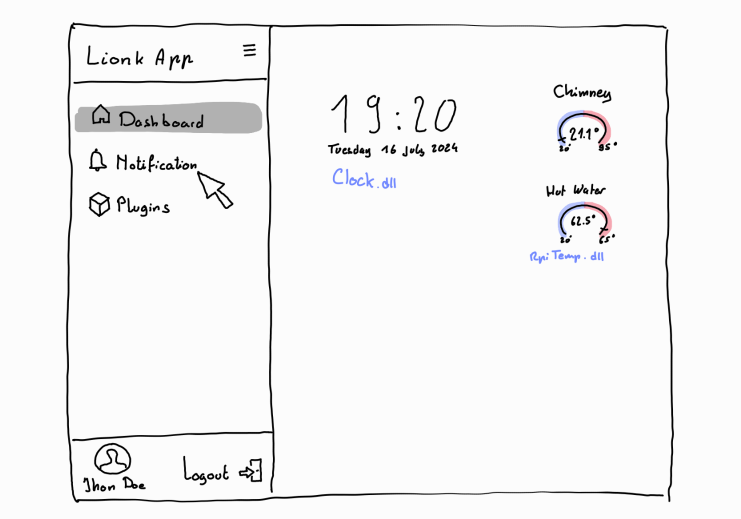 Lionk App
Dashboard
Notification
Plugins
Jhon Doe
Logout
19:20
Tuesday 16 July 2024
Clock.dll
Chimney
21.1°
20° 95°
Hot Water
62.5°
20° 65°
Rpi Temp.dll